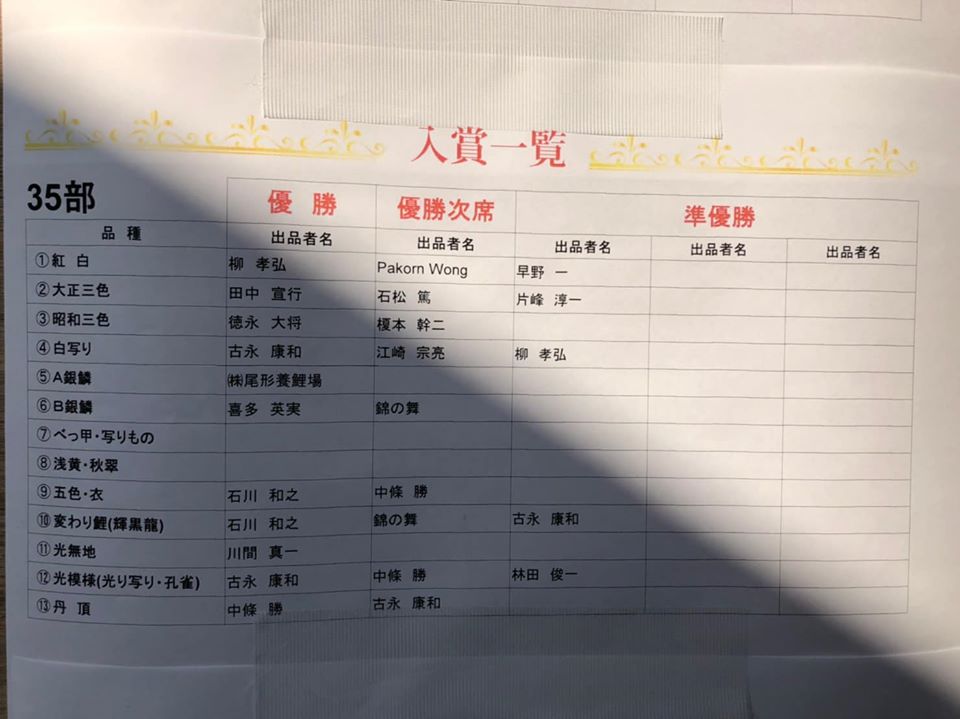 入賞一覧
35部 優勝 優勝次席 準優勝
品種 出品者名 出品者名 出品者名 出品者名 出品者名
①紅白 柳 孝弘 Pakorn Wong 早野 一
②大正三色 田中 宣行 石松 篤 片峰 淳一
③昭和三色 徳永 大将 榎本 幹二
④白写り 古永 康和 江崎 宗亮 柳 孝弘
⑤A銀鱗 ㈱尾形養鯉場
⑥B銀鱗 喜多 英実 錦の舞
⑦べっ甲・写りもの
⑧浅黄・秋翠
⑨五色・衣 石川 和之 中條 勝
⑩変わり鯉(輝黒龍) 石川 和之 錦の舞 古永 康和
⑪光無地 川間 真一
⑫光模様(光り写り・孔雀) 古永 康和 中條 勝 林田 俊一
⑬丹頂 中條 勝 古永 康和